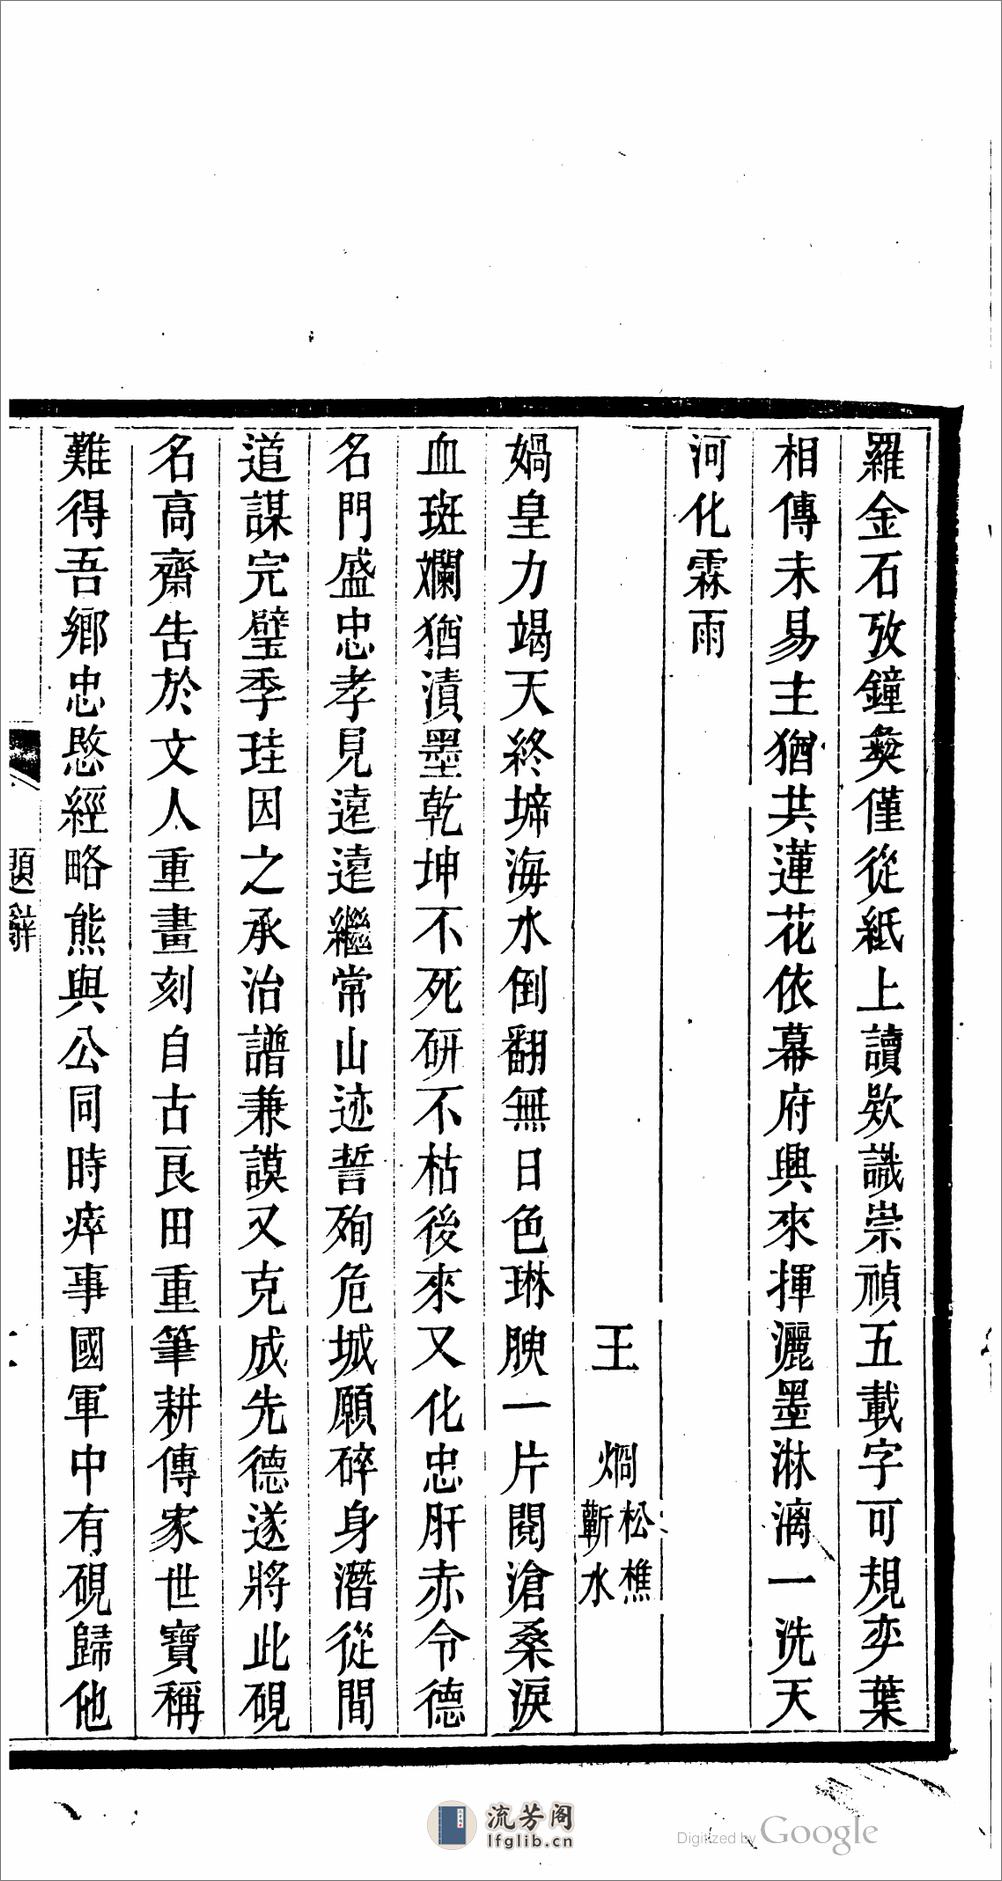 羅金石攷鐘彝僅從紙上讀欵識崇禎五載字可規弈葉
相傳未易主猶共蓮花依幕府興來揮灑墨淋漓一洗天
河化霖雨
王 烱 松樵 蘄水
媧皇力竭天終墆海水倒翻無日色琳腴一片閱滄桑淚
血斑斕猶漬墨乾坤不死研不枯後來又化忠肝赤令德
名門盛忠孝見遠遠繼常山迹誓殉危城願碎身潛從間
道謀完璧季珪因之承治譜兼謨又克成先德遂將此硯
名高齋告於文人重畫刻自古良田重筆耕傳家世寶稱
難得吾鄉忠愍經略熊與公同時瘁事國軍中有硯歸他
題辭
流芳阁
lfglib.cn
Digitized by Google